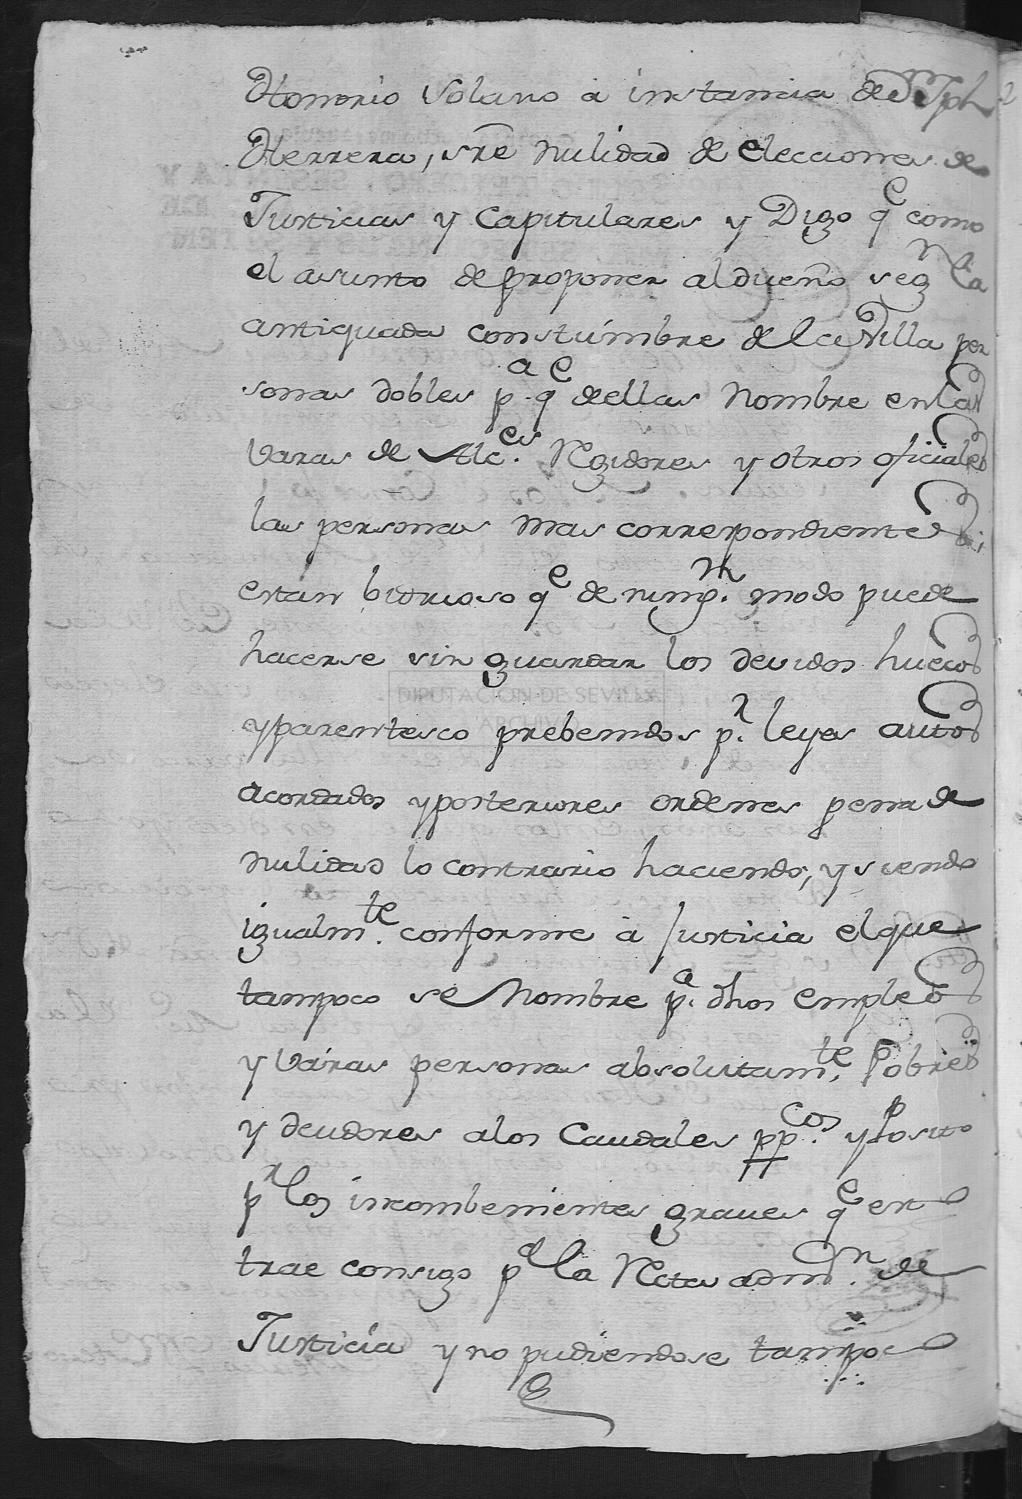 Honorio Solano a instancia de Dn. Jph
Herrera, sre nulidad de elecciones de
Justicias y Capitulares y Digo qe como
el asunto de proponer al dueño segn la
antiquada constumbre de lcha Villa per
sonas dobles pa. qe dellas Nombre en las
Varas de Alces. Regidores y otros oficiales
las personas mas correspondientes
están bidrioso qe de ningn. modo puede
hacerse sin guardar los devidos huecos
y parentesco prebenidos pr. leyes autos
acordados y posteriores ordenes pena de
nulidad lo contrario haciendo, y siendo
igualmte. conforme à Justicia el que
tampoco se Nombre pa. dhos empleos
y Váras personas absolutamte. Pobres
y deudores a los Caudales ppcos. y Posito
pr los incombenientes graves qe en
trae consigo pa la Recta admn. de
Justicia y no pudiendose tampoco
DIPUTACION DE SEVILLA
ARCHIVO